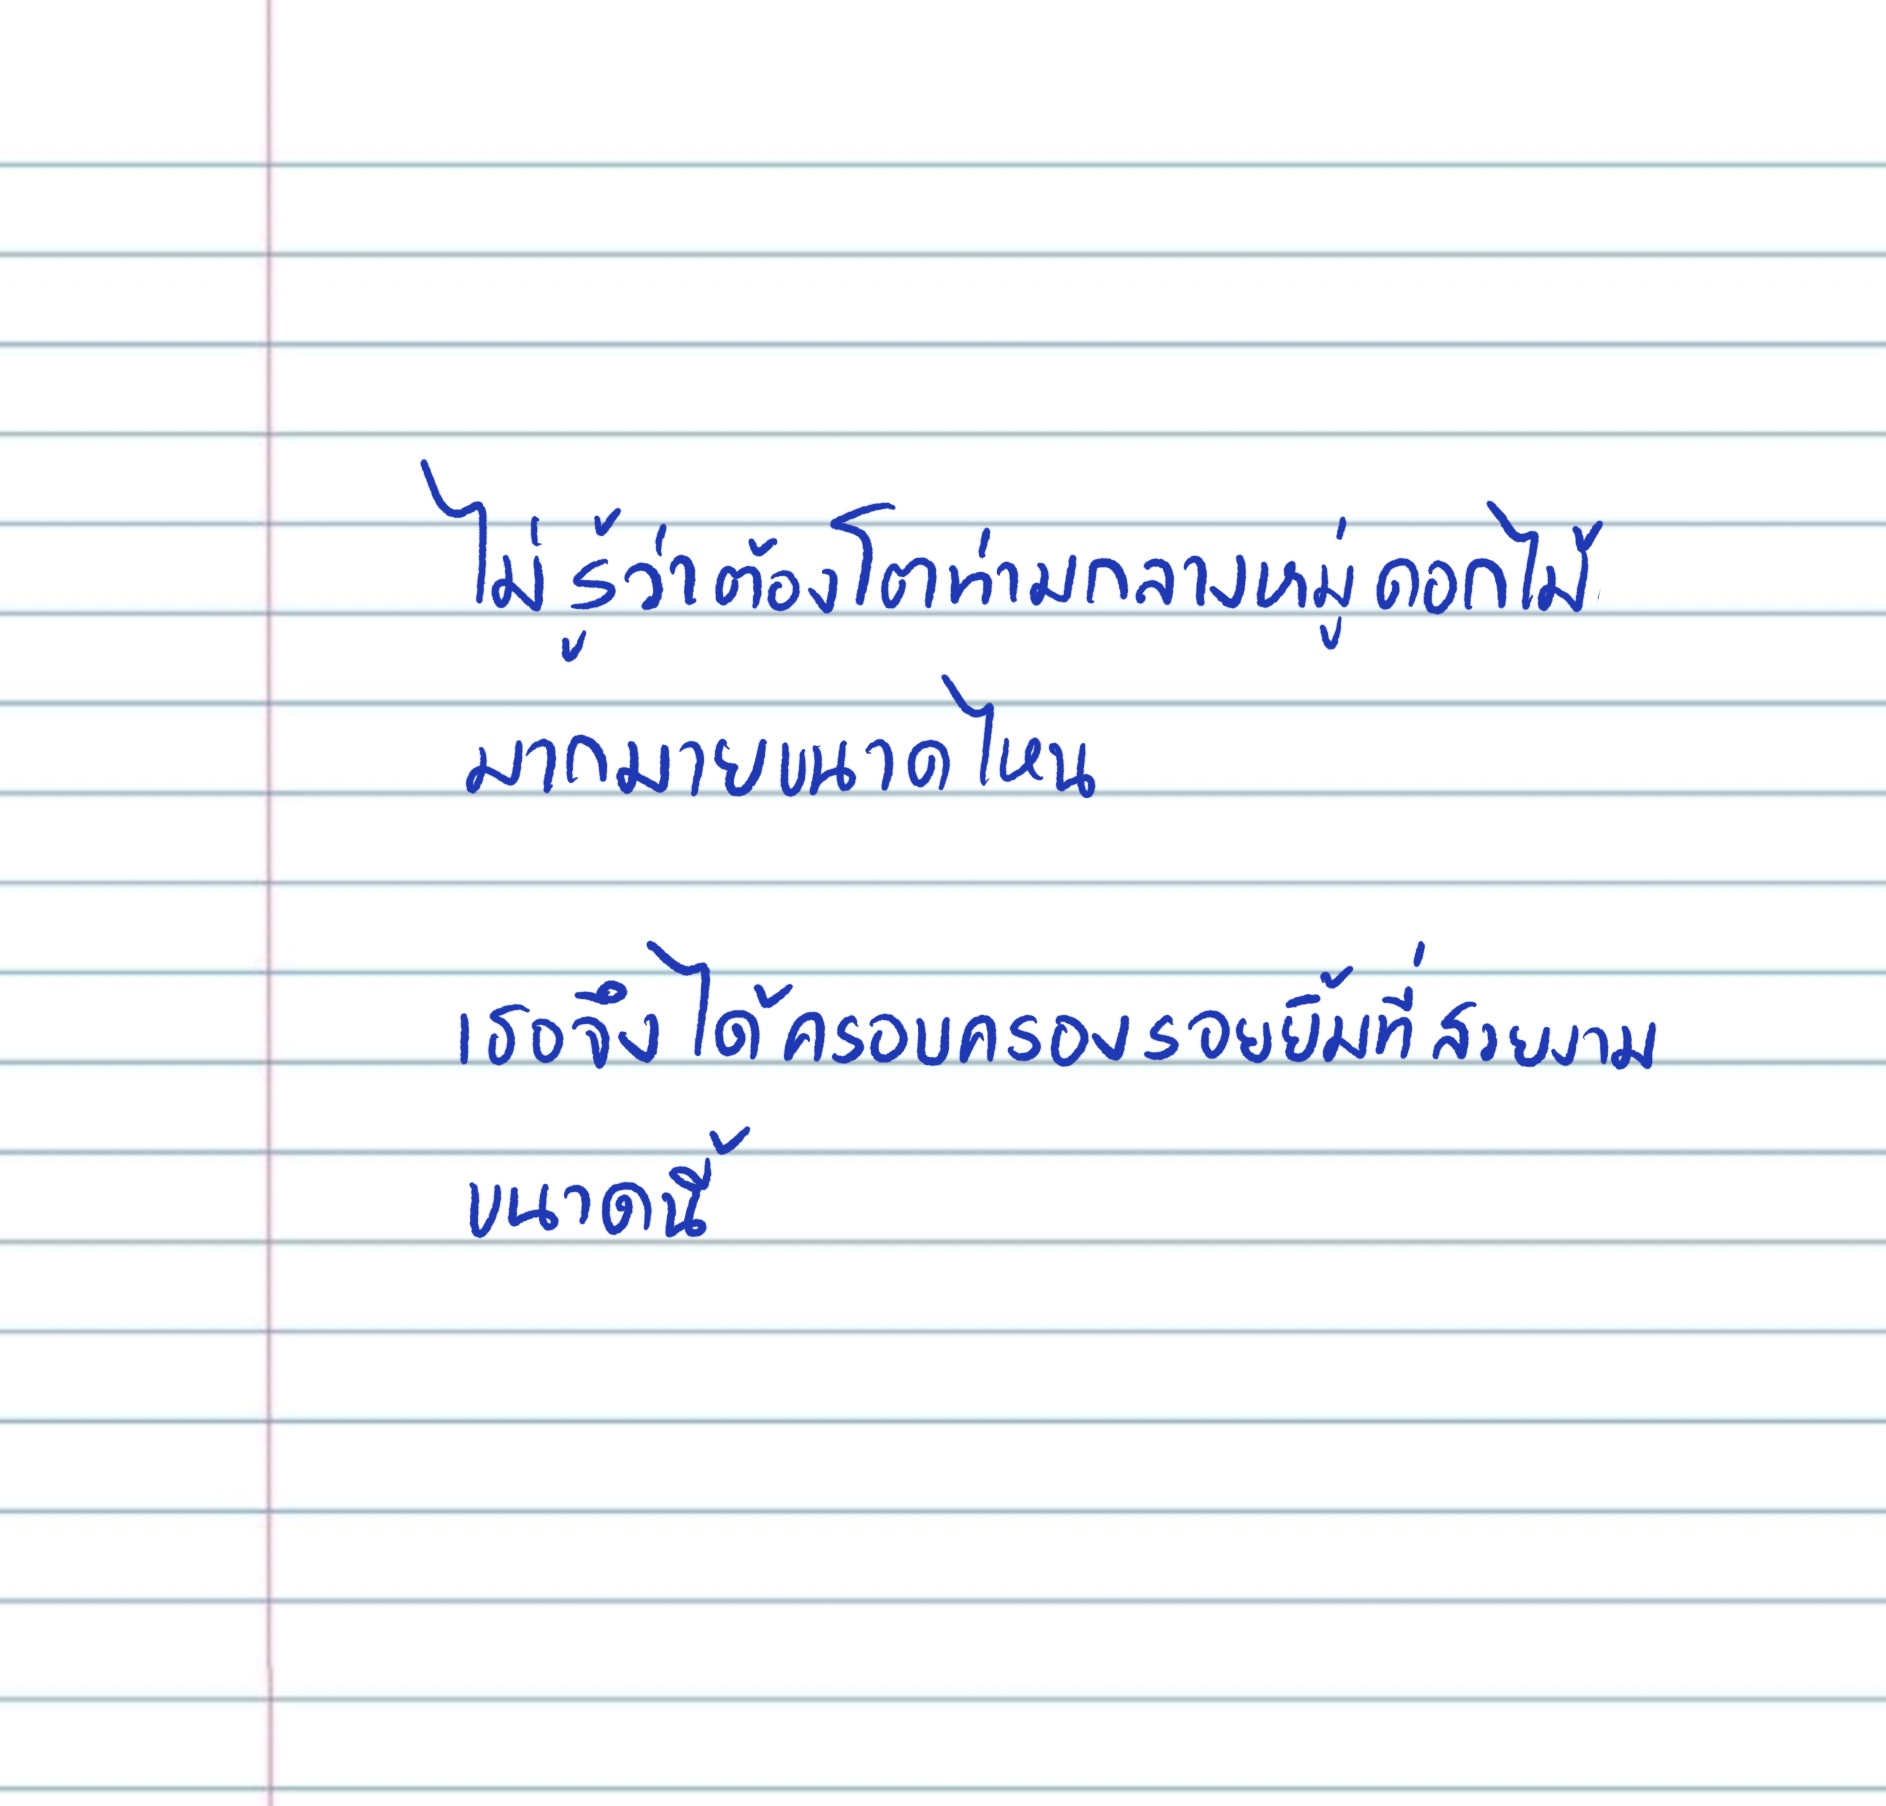 ไม่รู้ว่าต้องโตท่ามกลางหมู่ดอกไม้
มากมายขนาดไหน
เธอจึงได้ครอบครองรอยยิ้มที่สวยงาม
ขนาดนี้